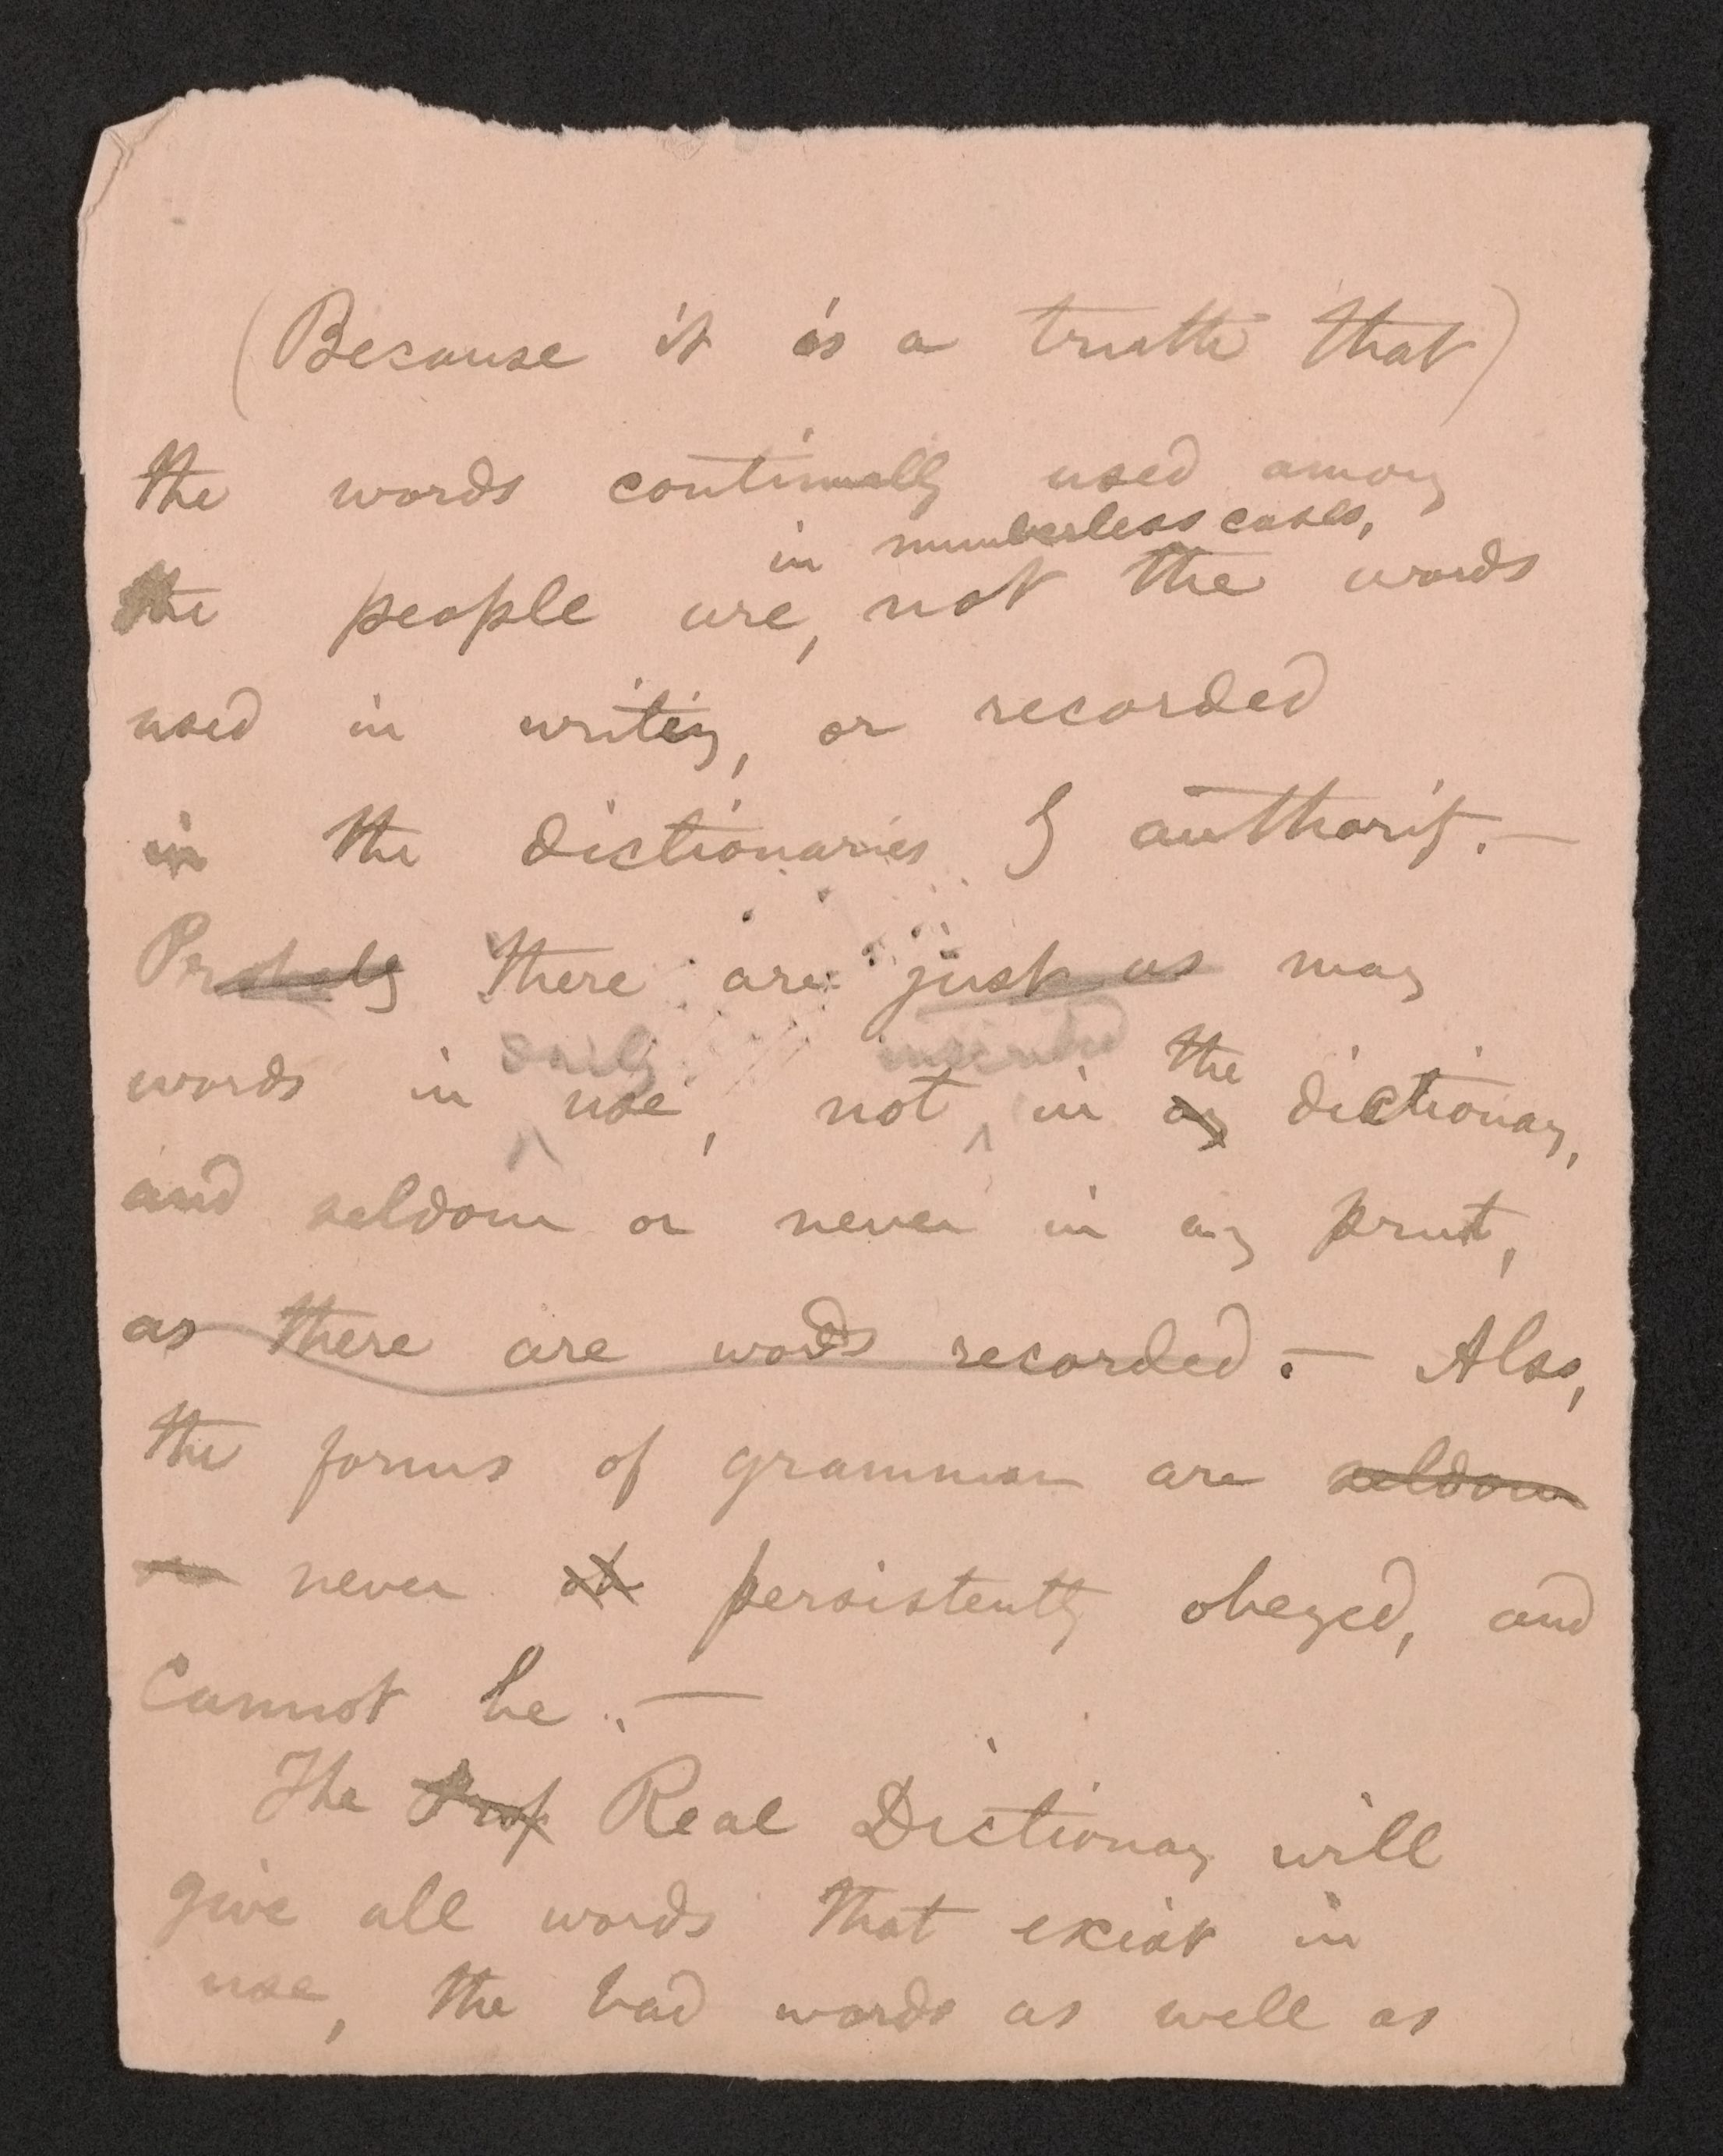 (Because it is a truth that)
the words continually used among
in numberless cases,
the people are, not the words
used in writing, or recorded
in the dictionaries by authority.—
Probably there are just as many
daily inserted the
words in use, not in any dictionary,
and seldom or never in any print,
as there are words recorded.— Also,
the forms of grammar are seldom
or never ob persistently obeyed, and
cannot be.—
The Prof Real Dictionary will
give all words that exist in
use, the bad words as well as